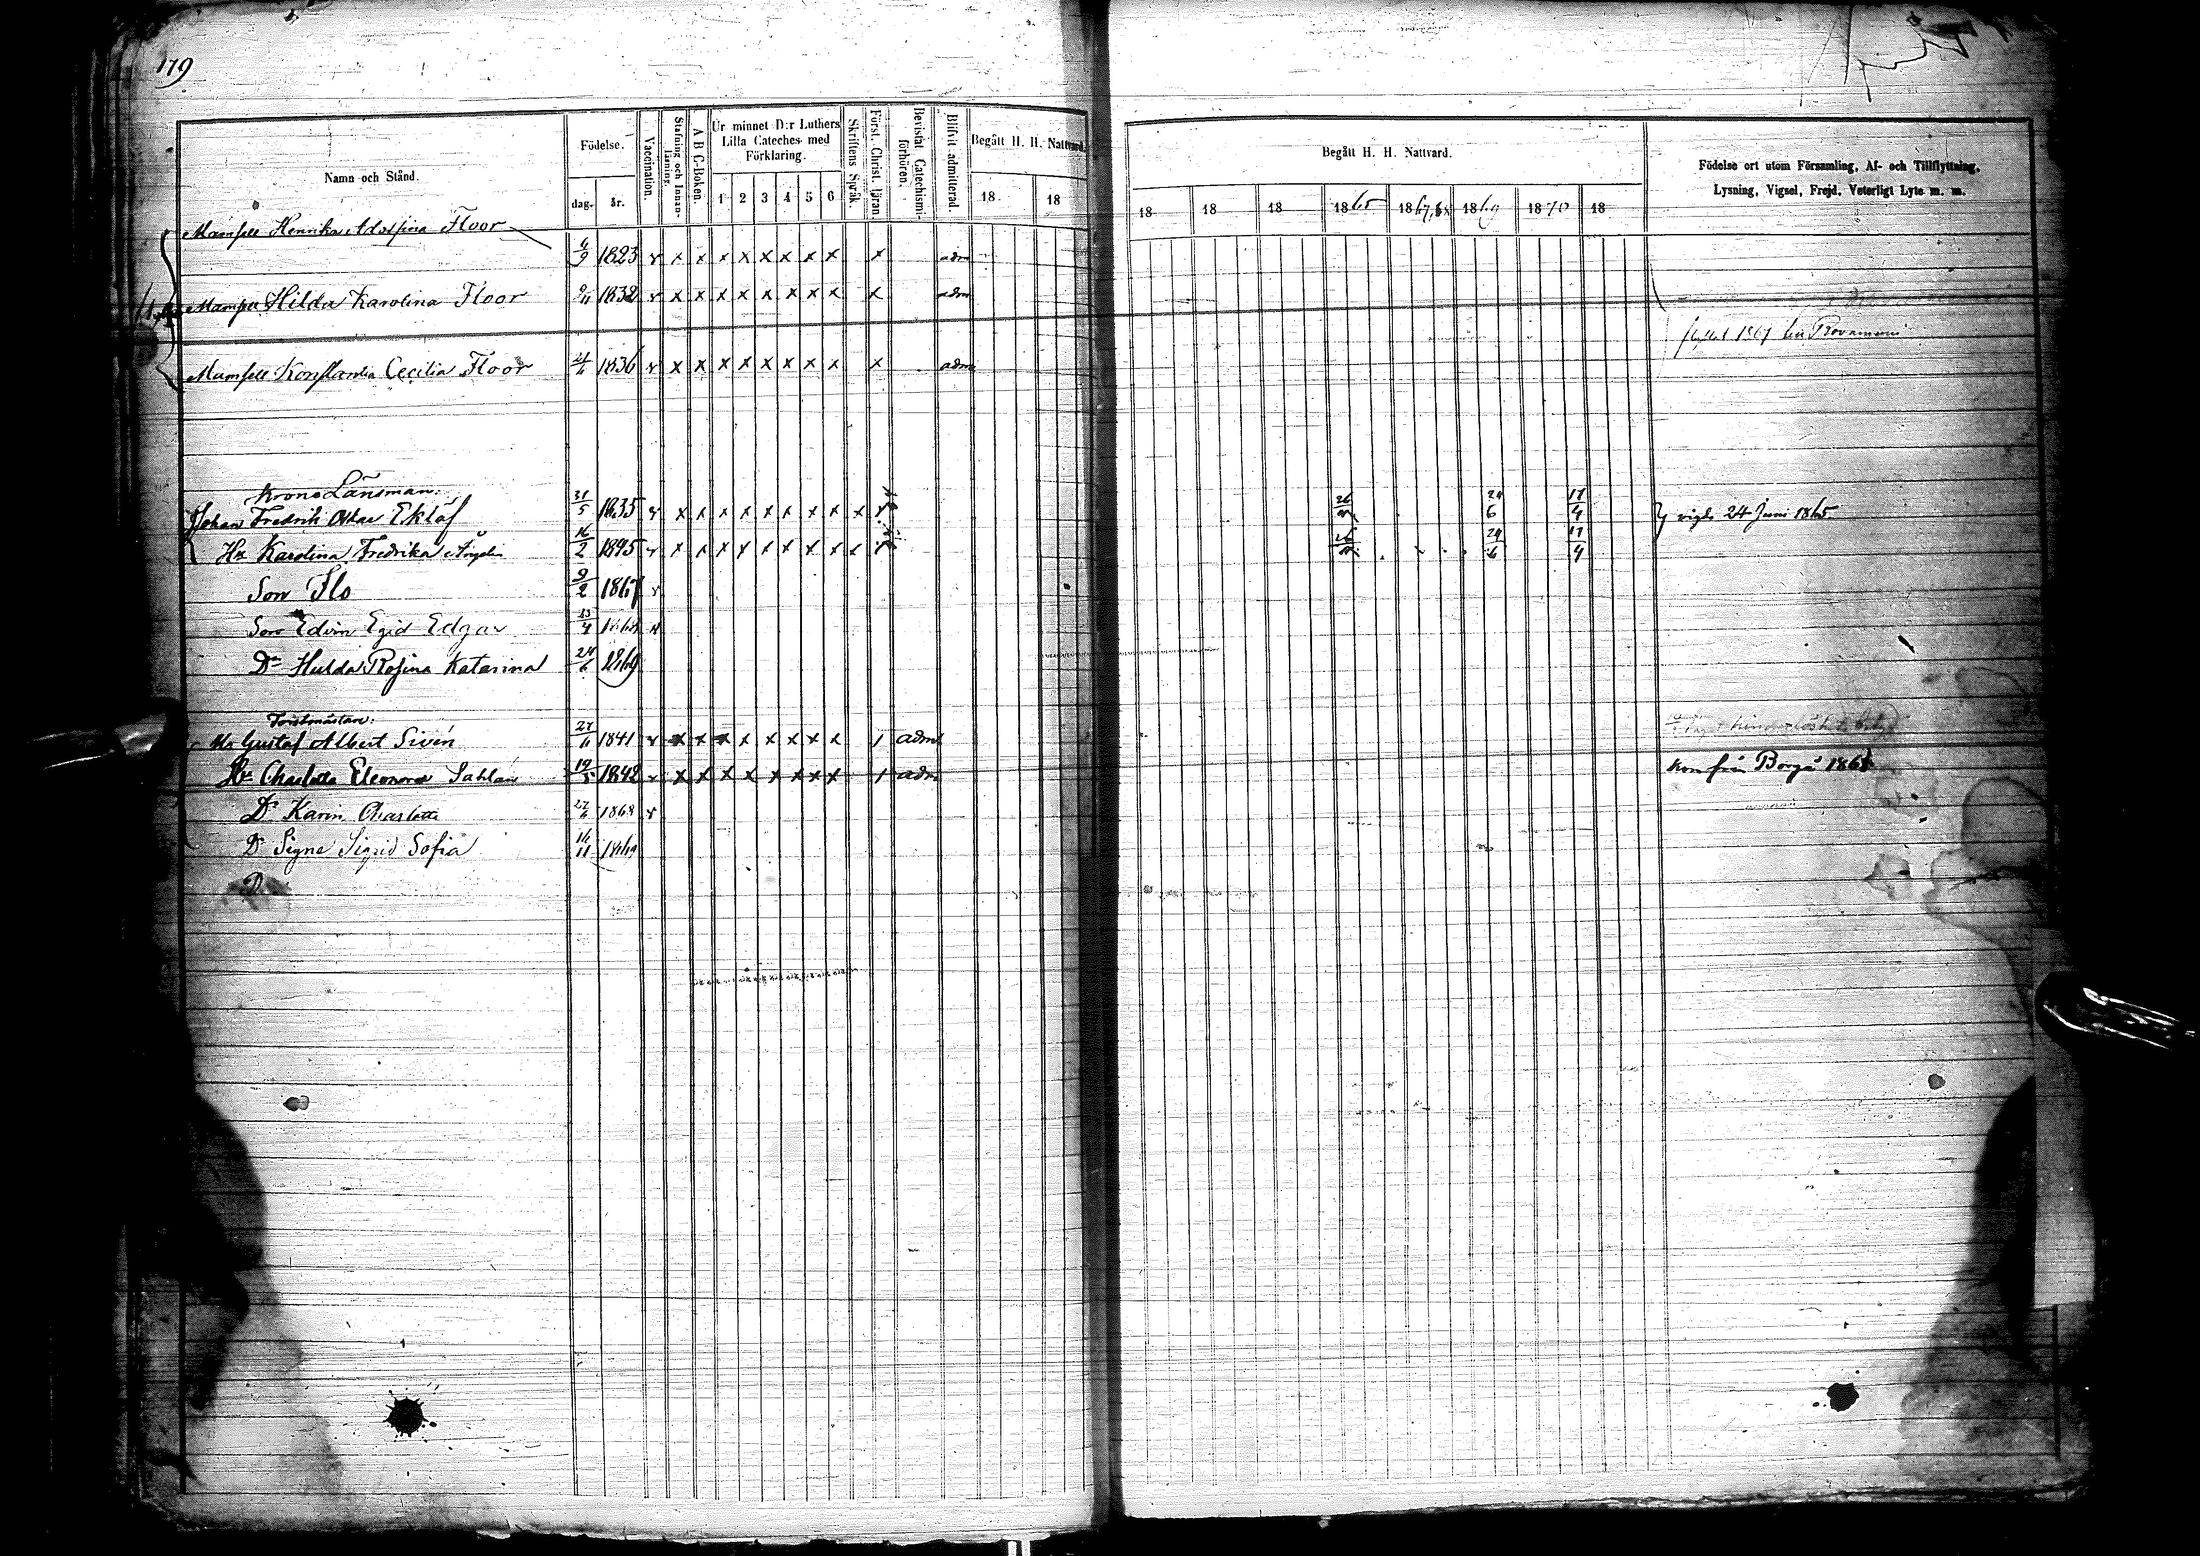 179
Namn och Stånd.
Födelse.
dag. år.
Vaccination.
Stafning och Innanläsning.
A B C-Boken.
Ur minnet D:r Luthers Lilla Cateches med Förklaring.
1 2 3 4 5 6
Skriftens Språk
Först. Christ. läran.
Bevistat Catechismiförhören.
Blifvit admitterad.
Begått H. H. Nattvard.
18 18
Begått H. H. Nattvard.
18 18 18 1865 1867,68 1869 1870 18
Födelse ort utom Församling, Af- och Tillflyttning,
Lysning, Vigsel, Frejd, Veterligt Lyte m. m.
Mamsell Henrika Adolfina Floor
6/9 1823 v x x x x x x x x x adm
Mamsell Hilda Karolina Floor 9/11 1832 v x x x x x x x x x adm
1867
Mamsell Konstantia Cecilia Floor 21/6 1836 v x x x x x x x x x adm
Krono Länsman:
Johan Fredrik Oskar Eklöf 31/5 1835 v x x x x x x x x x 24/6 17/4 vigde 24 Juni 1865
Hu Karolina Fredrika 16/2 1845 v x x x x x x x x x 24/6 17/4
Son Flo 9/2 1867 v
Son Edvin Egid Edgar 13/4 1868 v
Dr Hulda Rosina Katarina 24/6 1869
Forstmästare:
Gustaf Albert Sivén 27/6 1841 v x x x x x x x x 1 adm
Hu Charlotta Eleonora Sahlan 19/5 1842 v x x x x x x x x 1 adm kom från Borgå 1868
Dr Karin Charlotta 27/6 1868 v
Dr Signe Sigrid Sofia 16/11 1869
D